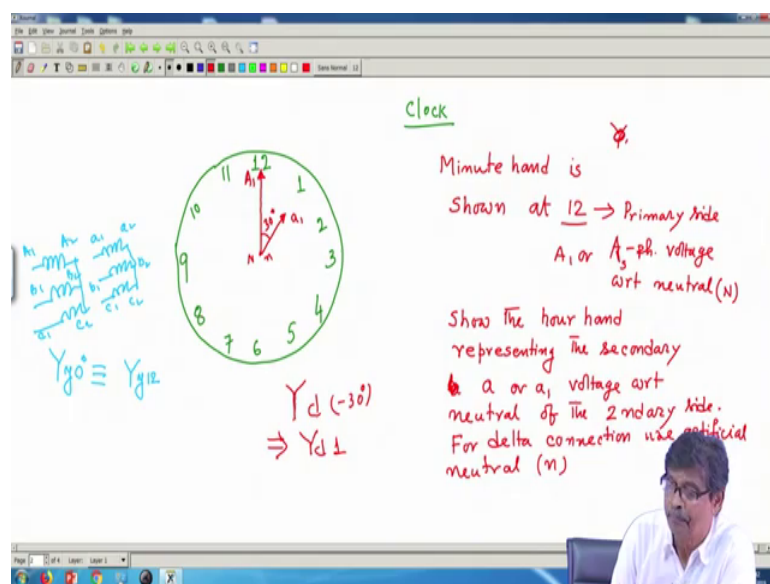 File Edit View Journal Tools Options Help
Sans Normal 12
Clock
Minute hand is
Shown at 12 → Primary side
A1 or A -ph. voltage
wrt neutral (N)
Show The hour hand
representing The secondary
a or a1 voltage wrt
neutral of The 2ndary side.
For delta connection use artificial
neutral (n)
12
1
2
3
4
5
6
7
8
9
10
11
A1
a1
30°
N
n
A1 A2 a1 a2
B1 B2 b1 b2
C1 C2 c1 c2
Yy0° ≡ Yy12
Yd (-30°)
⇒ Yd 1
Page 2 of 4 Layer: Layer 1